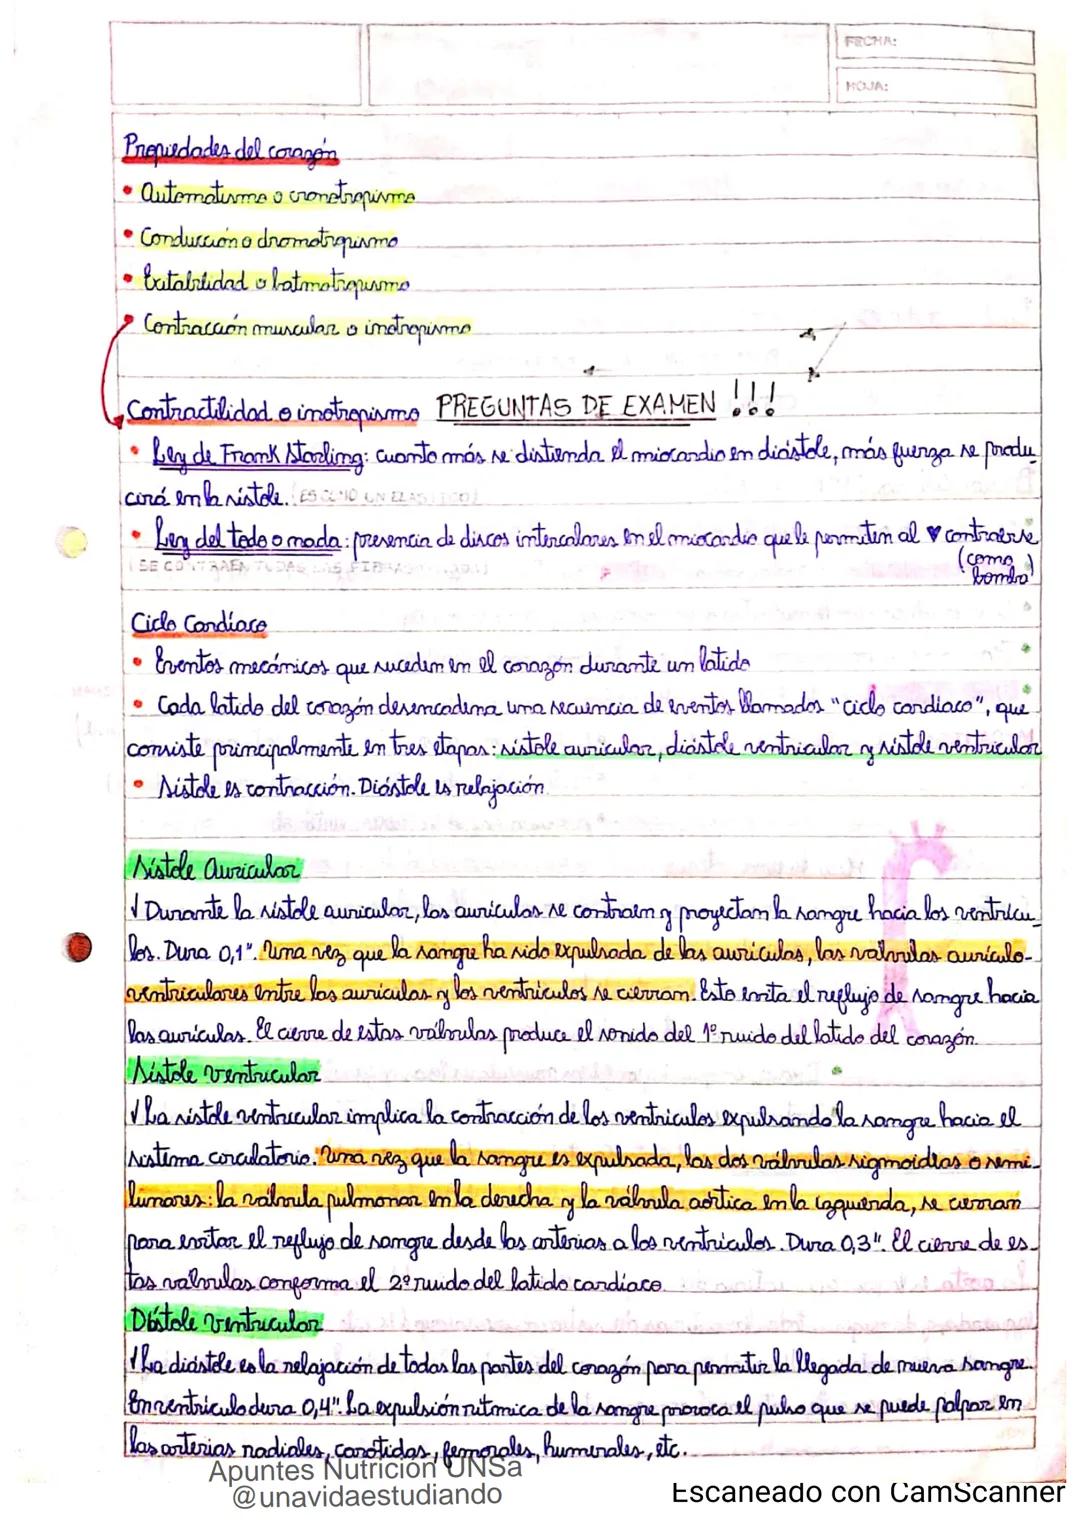 FECHA:
HOJA:
Propiedades del corazón
• Automatismo o cronotropismo
• Conducción o dromotropismo
• Exitabilidad o batmotropismo
• Contracción muscular o inotropismo
Contractilidad o inotropismo PREGUNTAS DE EXAMEN !!!
• Ley de Frank Starling: cuanto más se distienda el miocardio en diástole, más fuerza se produ
cirá en la sístole. (ES COMO UN ELASTICO)
• Ley del todo o nada: presencia de discos intercalares en el miocardio que le permiten al ♥ contraerse
(SE CONTRAEN TODAS LAS FIBRAS
(como
bomba)
Ciclo Cardíaco
• Eventos mecánicos que suceden en el corazón durante un latido
• Cada latido del corazón desencadena una secuencia de eventos llamados "ciclo cardíaco", que
consiste principalmente en tres etapas: sístole auricular, diástole ventricular y sístole ventricular
• Sístole es contracción. Diástole es relajación.
Sístole Auricular
√ Durante la sístole auricular, las aurículas se contraen y proyectan la sangre hacia los ventrícu_
los. Dura 0,1". Una vez que la sangre ha sido expulsada de las aurículas, las válvulas aurículo-
ventriculares entre las aurículas y los ventrículos se cierran. Esto evita el reflujo de sangre hacia
las aurículas. El cierre de estas válvulas produce el sonido del 1º ruido del latido del corazón.
Sístole ventricular
√ La sístole ventricular implica la contracción de los ventrículos expulsando la sangre hacia el
sistema circulatorio. Una vez que la sangre es expulsada, las dos válvulas sigmoideas o semi_
lunares: la válvula pulmonar en la derecha y la válvula aórtica en la izquierda, se cierran
para evitar el reflujo de sangre desde las arterias a los ventrículos. Dura 0,3". El cierre de es_
tas válvulas conforma el 2º ruido del latido cardíaco.
Diástole ventricular
√ La diástole es la relajación de todas las partes del corazón para permitir la llegada de nueva sangre.
En ventrículo dura 0,4". La expulsión rítmica de la sangre provoca el pulso que se puede palpar en
las arterias radiales, carótidas, femorales, humerales, etc.
Apuntes Nutrición UNSa
@unavidaestudiando
Escaneado con CamScanner